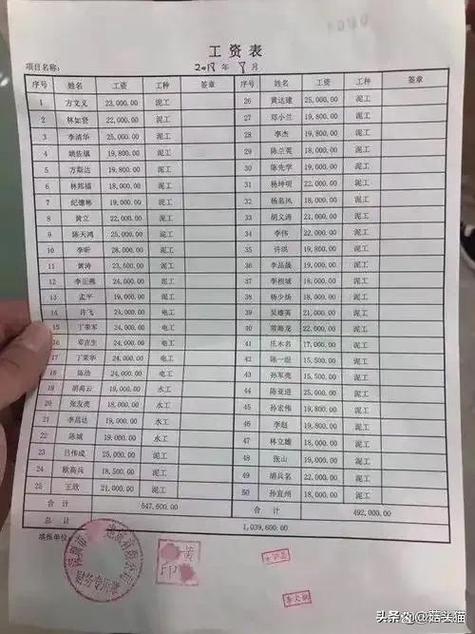 工资表
项目名称: 2018 年 7 月
序号 姓名 工资 工种 签章 序号 姓名 工资 工种 签章
1 方文义 23,000.00 泥工 26 黄达建 25,000.00 泥工
2 林如登 22,000.00 泥工 27 邓小兰 19,800.00 泥工
3 李清华 25,000.00 泥工 28 李杰 19,800.00 泥工
4 姚佐镇 19,800.00 泥工 29 陈兰英 18,000.00 泥工
5 方斯达 19,800.00 泥工 30 陈先学 19,000.00 泥工
6 林邦福 18,000.00 泥工 31 杨坤明 22,000.00 泥工
7 纪德彬 19,000.00 泥工 32 杨名凤 18,000.00 泥工
8 黄立 22,000.00 泥工 33 胡义涛 21,000.00 泥工
9 陈天鸿 25,000.00 泥工 34 李伟 22,000.00 泥工
10 李昕 28,000.00 泥工 35 许琪 19,800.00 泥工
11 黄涛 23,500.00 泥工 36 李品晟 19,000.00 泥工
12 李正燕 24,000.00 泥工 37 李根城 18,000.00 泥工
13 孟平 19,000.00 泥工 38 杨少扬 18,000.00 泥工
14 许飞 24,000.00 电工 39 吴娜英 21,000.00 泥工
15 丁荣军 24,000.00 电工 40 常海龙 22,000.00 泥工
16 邓吉生 24,000.00 电工 41 庄木名 17,000.00 泥工
17 丁荣华 24,000.00 电工 42 陈一组 15,500.00 泥工
18 陈浩 24,000.00 电工 43 孙军亮 15,500.00 泥工
19 胡高云 19,000.00 水工 44 陈亚进 25,000.00 泥工
20 张友亮 18,000.00 水工 45 孙宏伟 19,800.00 泥工
21 李昌达 19,000.00 水工 46 李赵 19,800.00 泥工
22 陈城 19,000.00 水工 47 林立雄 18,000.00 泥工
23 吕伟成 25,000.00 泥工 48 张山 19,000.00 泥工
24 欧高兵 18,500.00 泥工 49 胡兵名 22,000.00 泥工
25 王欣 21,000.00 泥工 50 孙宜州 18,000.00 泥工
合计 547,600.00 合计 492,000.00
总计 1,039,600.00
填报单位:
黄
印
头条 @菇头猫